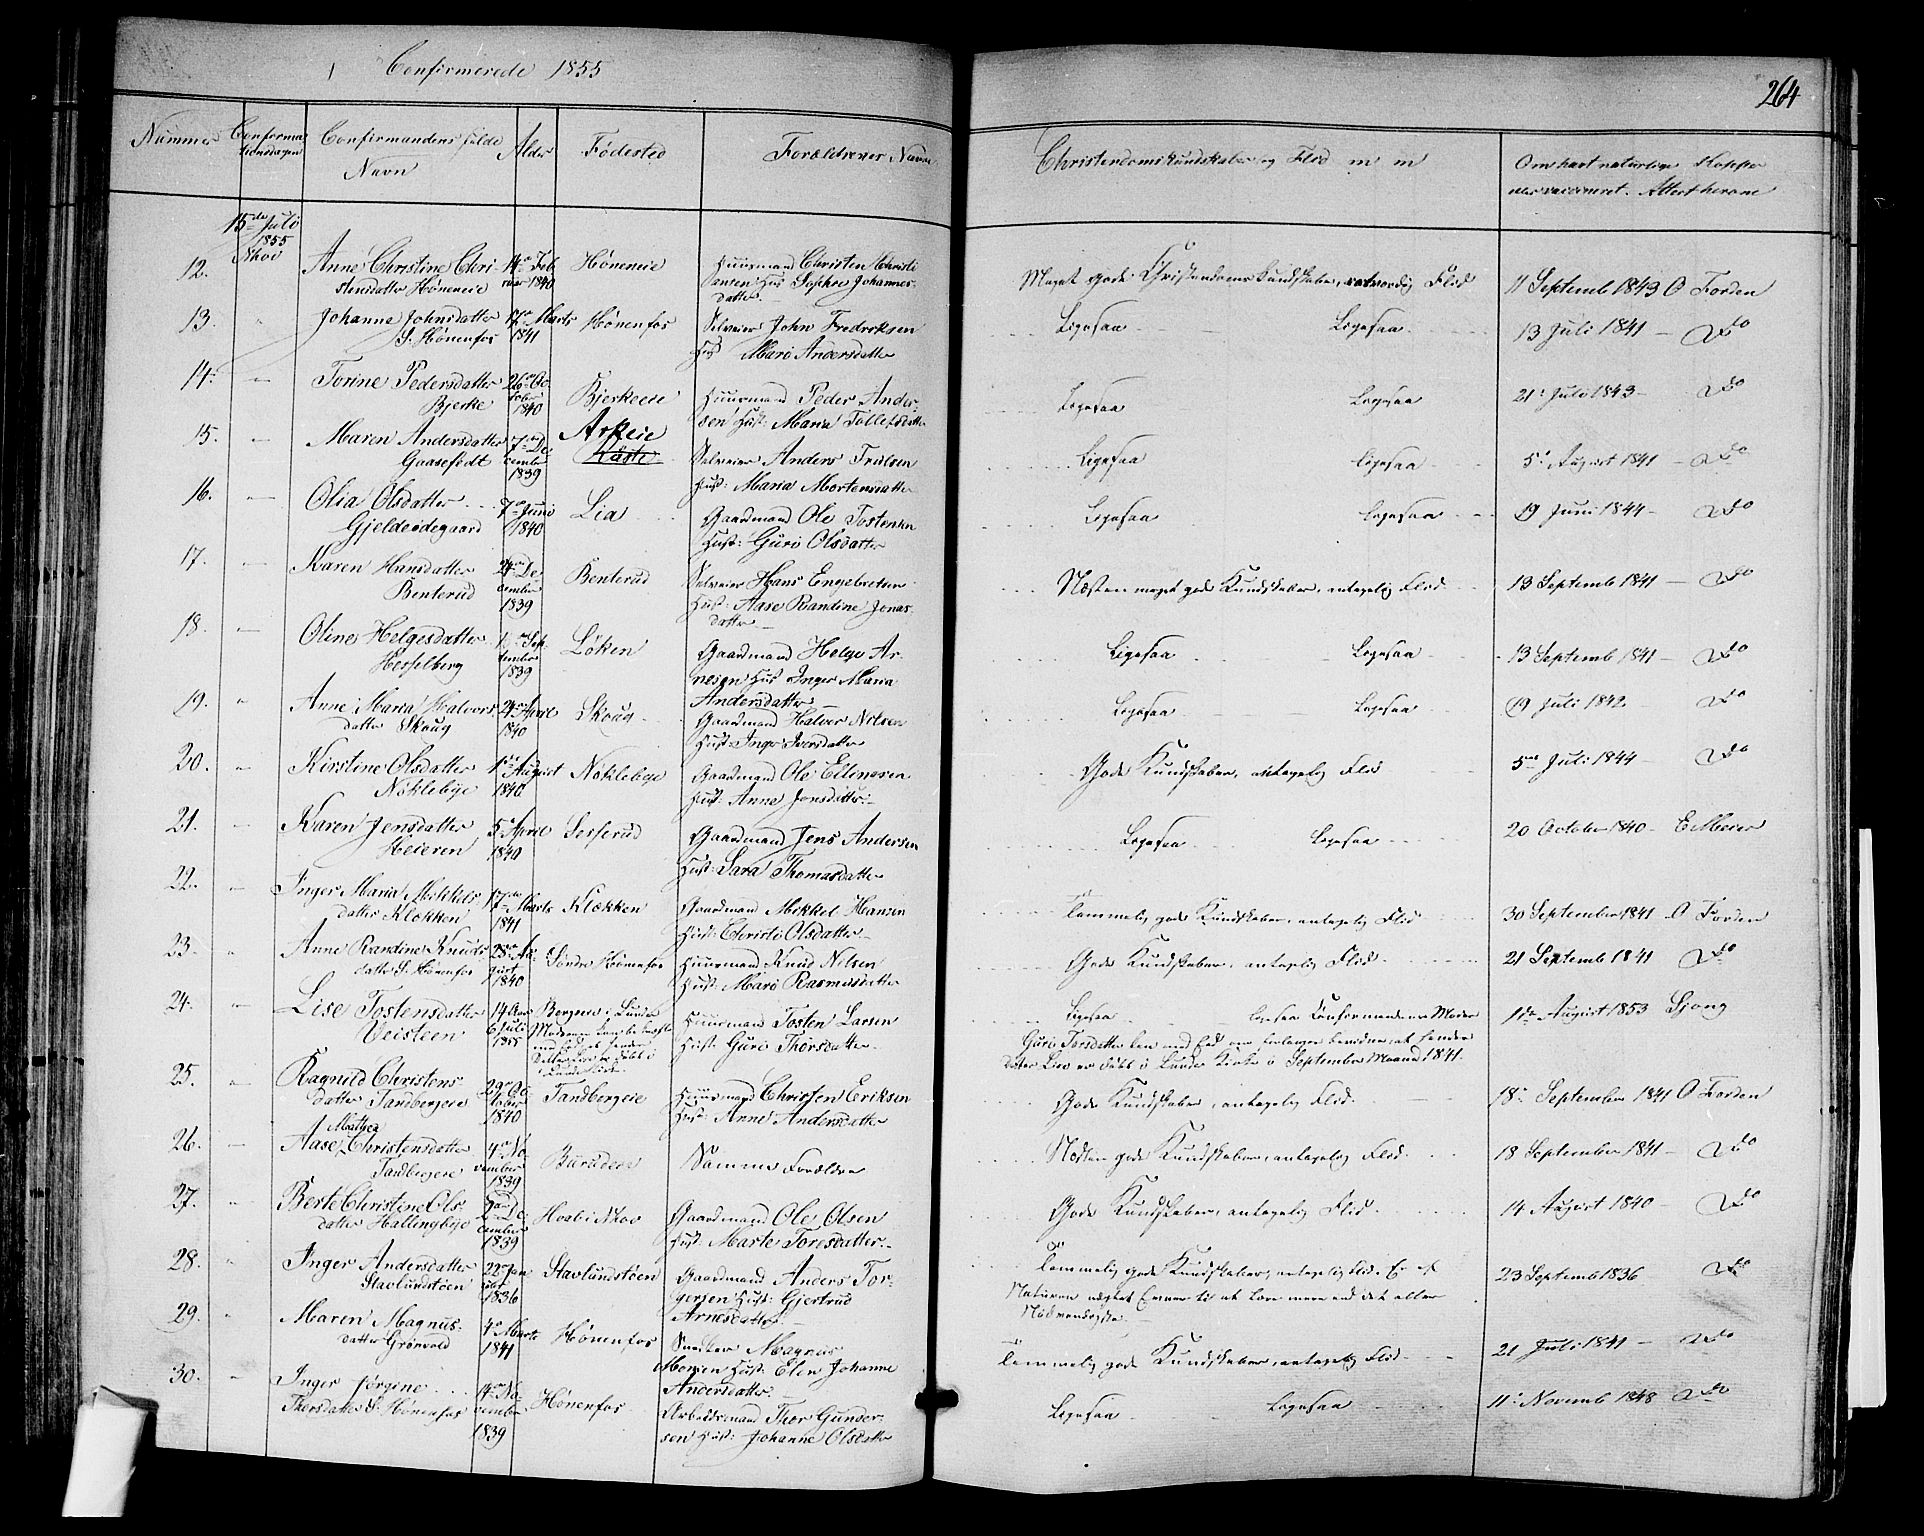 Confirmerede 1855
264
Nummer
Confirma
tionsdagen
Confirmandens fulde
Navn
Alder
Fødested
Forældrenes Navn
Christendomskundskaber og Flid m m
Om havt naturlige Kopper
eller vaccineret. Attest herom
15de Juli
1855
12.
Anne Christine Chri
stensdatter Høneneie
14de Feb
ruar 1840
Høneneie
Huusmand Christen Christi
ansen Hus Sophie Johannes
datter
Meget gode Christendoms Kundskaber, Flid
11 Septemb 1843 O Forden
13.
Johanne Johnsdatter
S. Hønenfos
17de Marts
1841
Hønenfos
Selveier John Fredriksen
Hus Mari Andersdatter
Ligesaa Ligesaa
13 Juli 1841 — Do
14.
Torine Pedersdatter
Bjerke
26de Oc
tober
1840
Bjerkeeie
Huusmand Peder Ander
sen Hust: Maria Tollefsdatter
Ligesaa Ligesaa
21 Juli 1843 Do
15.
Maren Andersdatter
Gaasefødt
7de De
cember
1839
Askeie
Selveier Anders Trulsen
Hust: Maria Mortensdatter
Ligesaa Ligesaa
5 August 1841 — Do
16.
Olia Olsdatter
Gjeldeødegaard
7de Juni
1840
Lia
Gaardmand Ole Tostensen
Hust: Guri Olsdatter
Ligesaa Ligesaa
19 Juni 1844 — Do
17.
Karen Hansdatter
Benterud
24de De
cember
1839
Benterud
Selveier Hans Engebretsen
Hust: Aase Randine Jonas
datter
Næsten meget gode Kundskaber, antagelig Flid
13 Septemb 1841 — Do
18.
Oline Helgesdatter
Hesselberg
1 Sep
tember
1839
Løken
Gaardmand Helge Ar
nesen Hus Inger Maria
Andersdatter
Ligesaa Ligesaa
13 Septemb 1841 — Do
19.
Anne Maria Halvors
datter Skoug
24de April
1840
Skoug
Gaardmand Halvor Nilsen
Hust: Inge Iversdatter
Ligesaa Ligesaa
19 Juli 1842 Do
20.
Kirstine Olsdatter
Nøklebye
1ste August
1840
Nøklebye
Gaardmand Ole Ellingsen
Hust: Anne Jonsdatter
Gode Kundskaber, antagelig Flid
5te Juli 1844 — Do
21.
Karen Jensdatter
Heieren
5 April
1840
Sesserud
Gaardmand Jens Andersen
Hust: Sara Thomasdatter
Ligesaa Ligesaa
20 October 1840 E Meier
22.
Inger Maria Mikkels
datter Klækken
17de Marts
1841
Klækken
Gaardmand Mikkel Hansen
Hust: Christi Olsdatter
Temmelig gode Kundskaber, antagelig Flid
30 September 1841 O Forden
23.
Anne Randine Knuds
datter S. Hønenfos
25de Au
gust
1840
Søndre Hønenfos
Huusmand Knud Nilsen
Hust: Mari Rasmusdatter
Gode Kundskaber, antagelig Flid
21 Septemb 1841 Do
24.
Lise Tostensdatter
Veisteen
14 Aar
6 Juli
1855
Bergen i Lunder
Huusmand Tosten Larsen
Hust: Guri Thorsdatter
Ligesaa ligesaa Confirmandens Moder
Guri Torsdatter kan med Eed om forlanges bevidne, at hendes
datter Lise er døbt i Lunder Kirke i September Maaned 1841.
11te August 1853 Sjong
25.
Ragnild Christens
datter Tandbergeie
29de Oc
tober
1840
Tandbergeie
Huusmand Christen Eriksen
Hus: Anne Andersdatter
Gode Kundskaber, antagelig Flid
18 September 1841 O Forden
26.
Mathea
Aase Christensdatter
Tandbergeie
4de No
vember
1839
Burudeie
Samme Forældre
Næsten gode Kundskaber, antagelig Flid
18 September 1841 — Do
27.
Berte Christine Ols
datter Hallingbye
2den De
cember
1839
Hval i Skov
Gaardmand Ole Olsen
Hust: Marte Toresdatter
Gode Kundskaber, antagelig Flid
14 August 1840 — Do
28.
Inger Andersdatter
Stavlundstøen
22de Jan
uar
1836
Stavlundstøen
Gaardmand Anders Tor
gersen Hust: Gjertrud
Arnesdatter
Temmelig gode Kundskaber, antagelig Flid. Er af
Naturen nægtet Evner til at lære mere end det aller
Nødvendigste
23 Septemb 1836 Do
29.
Maren Magnus
datter Grønvold
4de Marts
1841
Hønenfos
Snedker Magnus
Monsen Hust: Elen Johanne
Andersdatter
Temmelig gode Kundskaber, antagelig Flid
21 Juli 1841 — Do
30.
Inger Jørgine
Thorsdatter S. Hønenfos
14de No
vember
1839
Hønenfos
Arbeidsmand Thor Gunder
sen Hust: Johanne Olsdatter
Ligesaa Ligesaa
11 Novemb 1848 Do